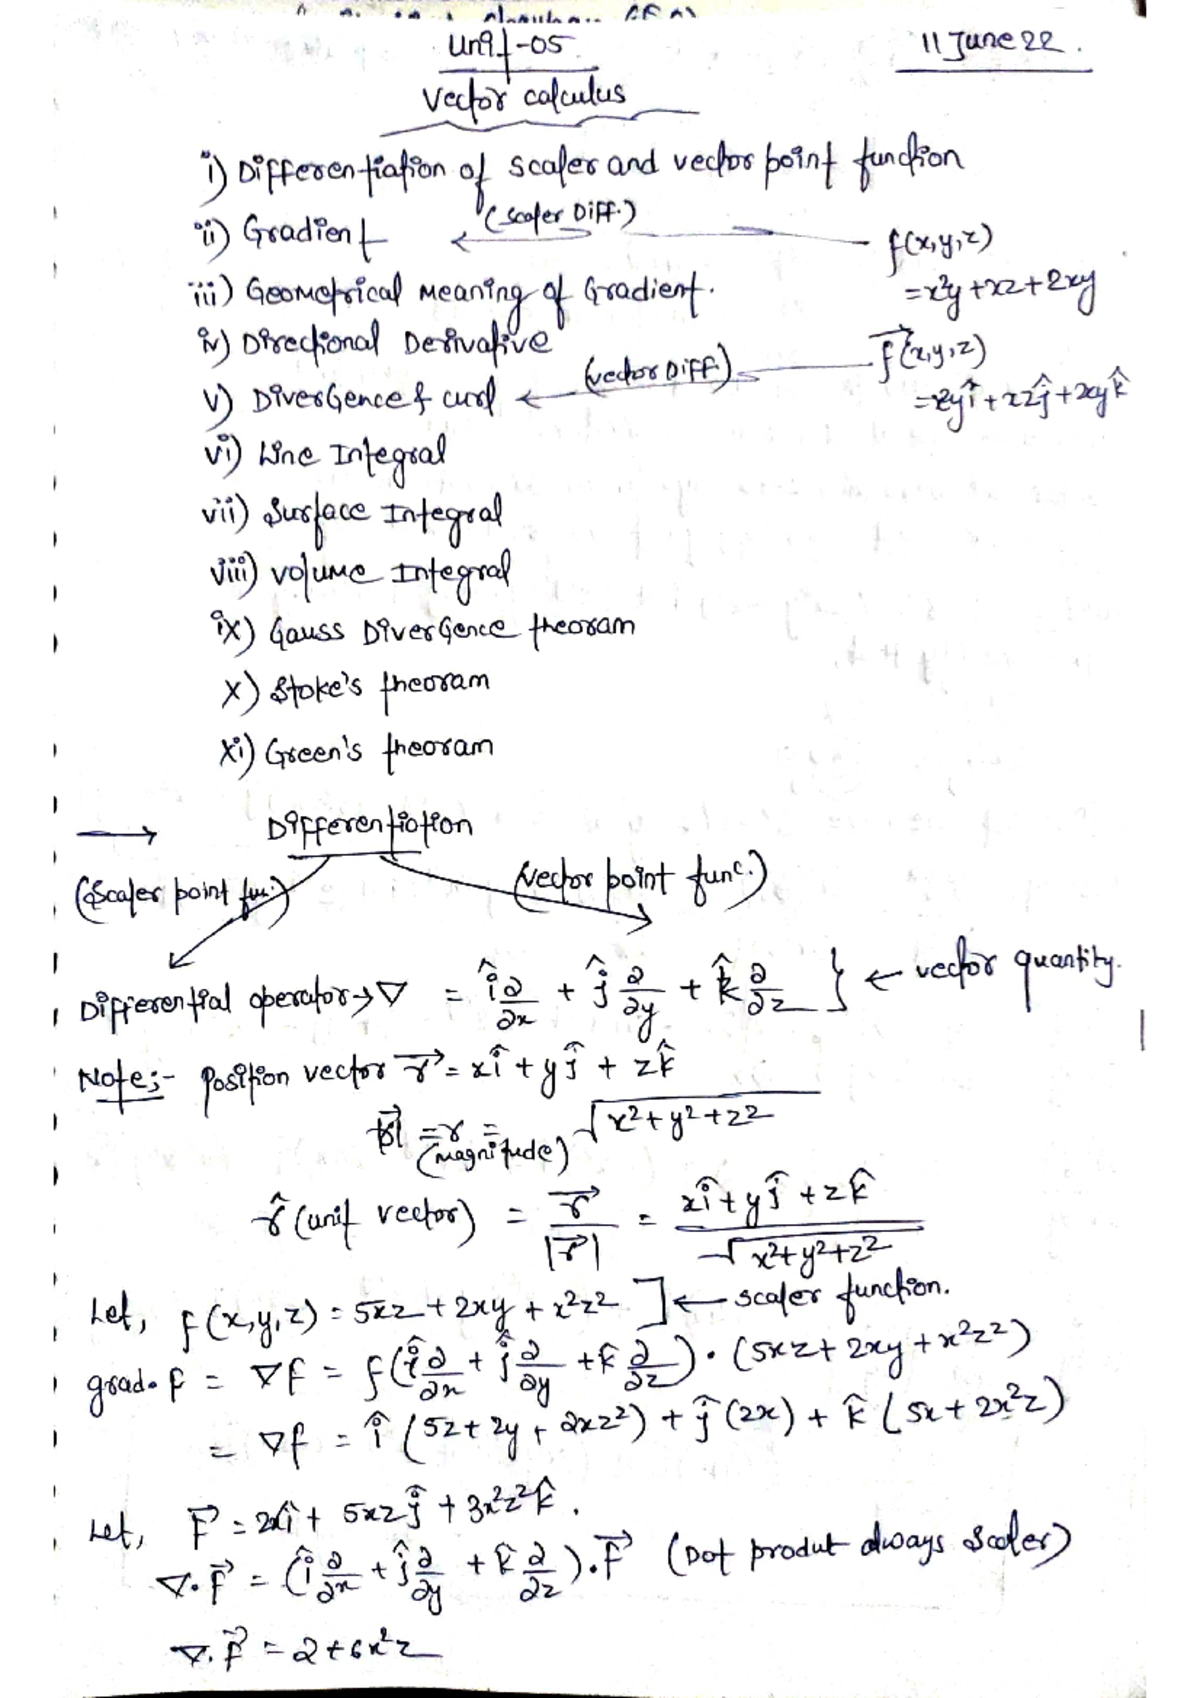 Unit-05
11 June 22.
Vector calculus
i) Differentiation of scaler and vector point function
ii) Gradient (scaler Diff.) f(x,y,z)
iii) Geometrical Meaning of Gradient. =x²y+xz+2xy
iv) Directional Derivative f⃗(x,y,z)
v) Divergence & curl (vector Diff.) =xyî+xzĵ+xyk̂
vi) Line Integral
vii) Surface Integral
viii) Volume Integral
ix) Gauss Divergence theoram
x) Stoke's theoram
xi) Green's theoram
→ Differentiation
(Scaler point fun.) (Vector point func.)
Differential operator → ∇ = î ∂/∂x + ĵ ∂/∂y + k̂ ∂/∂z } ← vector quantity.
Note:- Position vector r⃗ = xî + yĵ + zk̂
|r⃗| = r = √x²+y²+z²
(magnitude)
r̂ (unit vector) = r⃗/|r⃗| = xî+yĵ+zk̂/√x²+y²+z²
Let, f(x,y,z) = 5xz + 2xy + x²z² ] ← scaler function.
grad. f = ∇f = f(î ∂/∂x + ĵ ∂/∂y + k̂ ∂/∂z) · (5xz + 2xy + x²z²)
= ∇f = î (5z + 2y + 2xz²) + ĵ (2x) + k̂ (5x + 2x²z)
Let, F⃗ = 2xî + 5xzĵ + 3x²z²k̂.
∇.F⃗ = (î ∂/∂x + ĵ ∂/∂y + k̂ ∂/∂z).F⃗ (Dot produt always Scaler)
∇.F⃗ = 2 + 6x²z